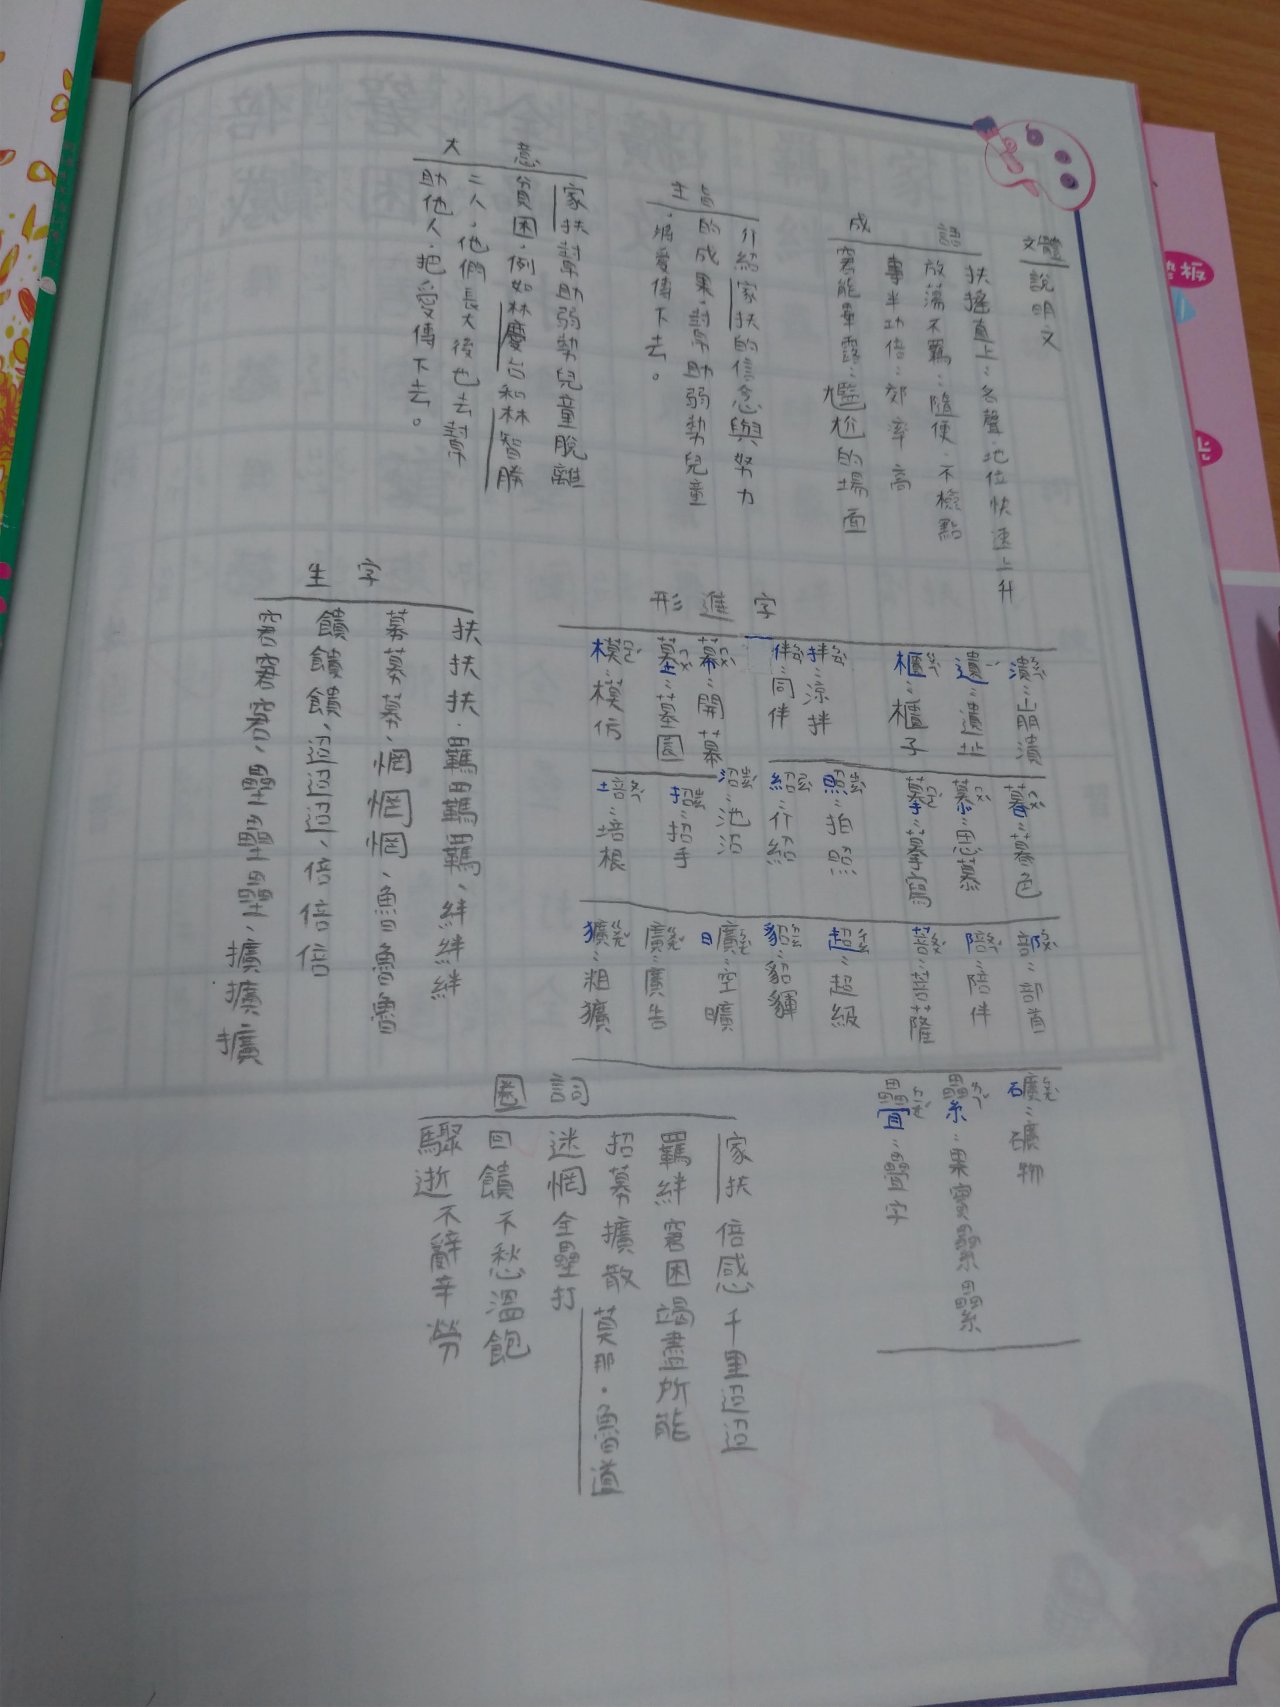 文體
說明文
成語
扶搖直上：名聲、地位快速上升
放蕩不羈：隨便、不檢點
事半功倍：效率高
窘態畢露：尷尬的場面
主旨
介紹家扶的信念與努力
的成果，幫助弱勢兒童
，將愛傳下去。
大意
家扶幫助弱勢兒童脫離
貧困，例如林慶台和林智勝
二人，他們長大後也去幫
助他人，把愛傳下去。
形進字
潰：山崩潰
遺：遺址
櫃：櫃子
拌：涼拌
伴：同伴
幕：開幕
墓：墓園
模：模仿
暮：暮色
慕：思慕
摹：摹寫
照：拍照
紹：介紹
沼：池沼
招：招手
培：培根
部：部首
陪：陪伴
菩：菩薩
超：超級
貂：貂蟬
曠：空曠
廣：廣告
獷：粗獷
礦：礦物
纍：果實纍纍
疊：疊字
生字
扶扶扶、羈羈羈、絆絆絆
募募募、惘惘惘、魯魯魯
饋饋饋、迢迢迢、倍倍倍
窘窘窘、壘壘壘、擴擴擴
圈詞
家扶 倍感 千里迢迢
羈絆 窘困 竭盡所能
招募 擴散 莫那·魯道
迷惘 全壘打
回饋 不愁溫飽
驟逝 不辭辛勞